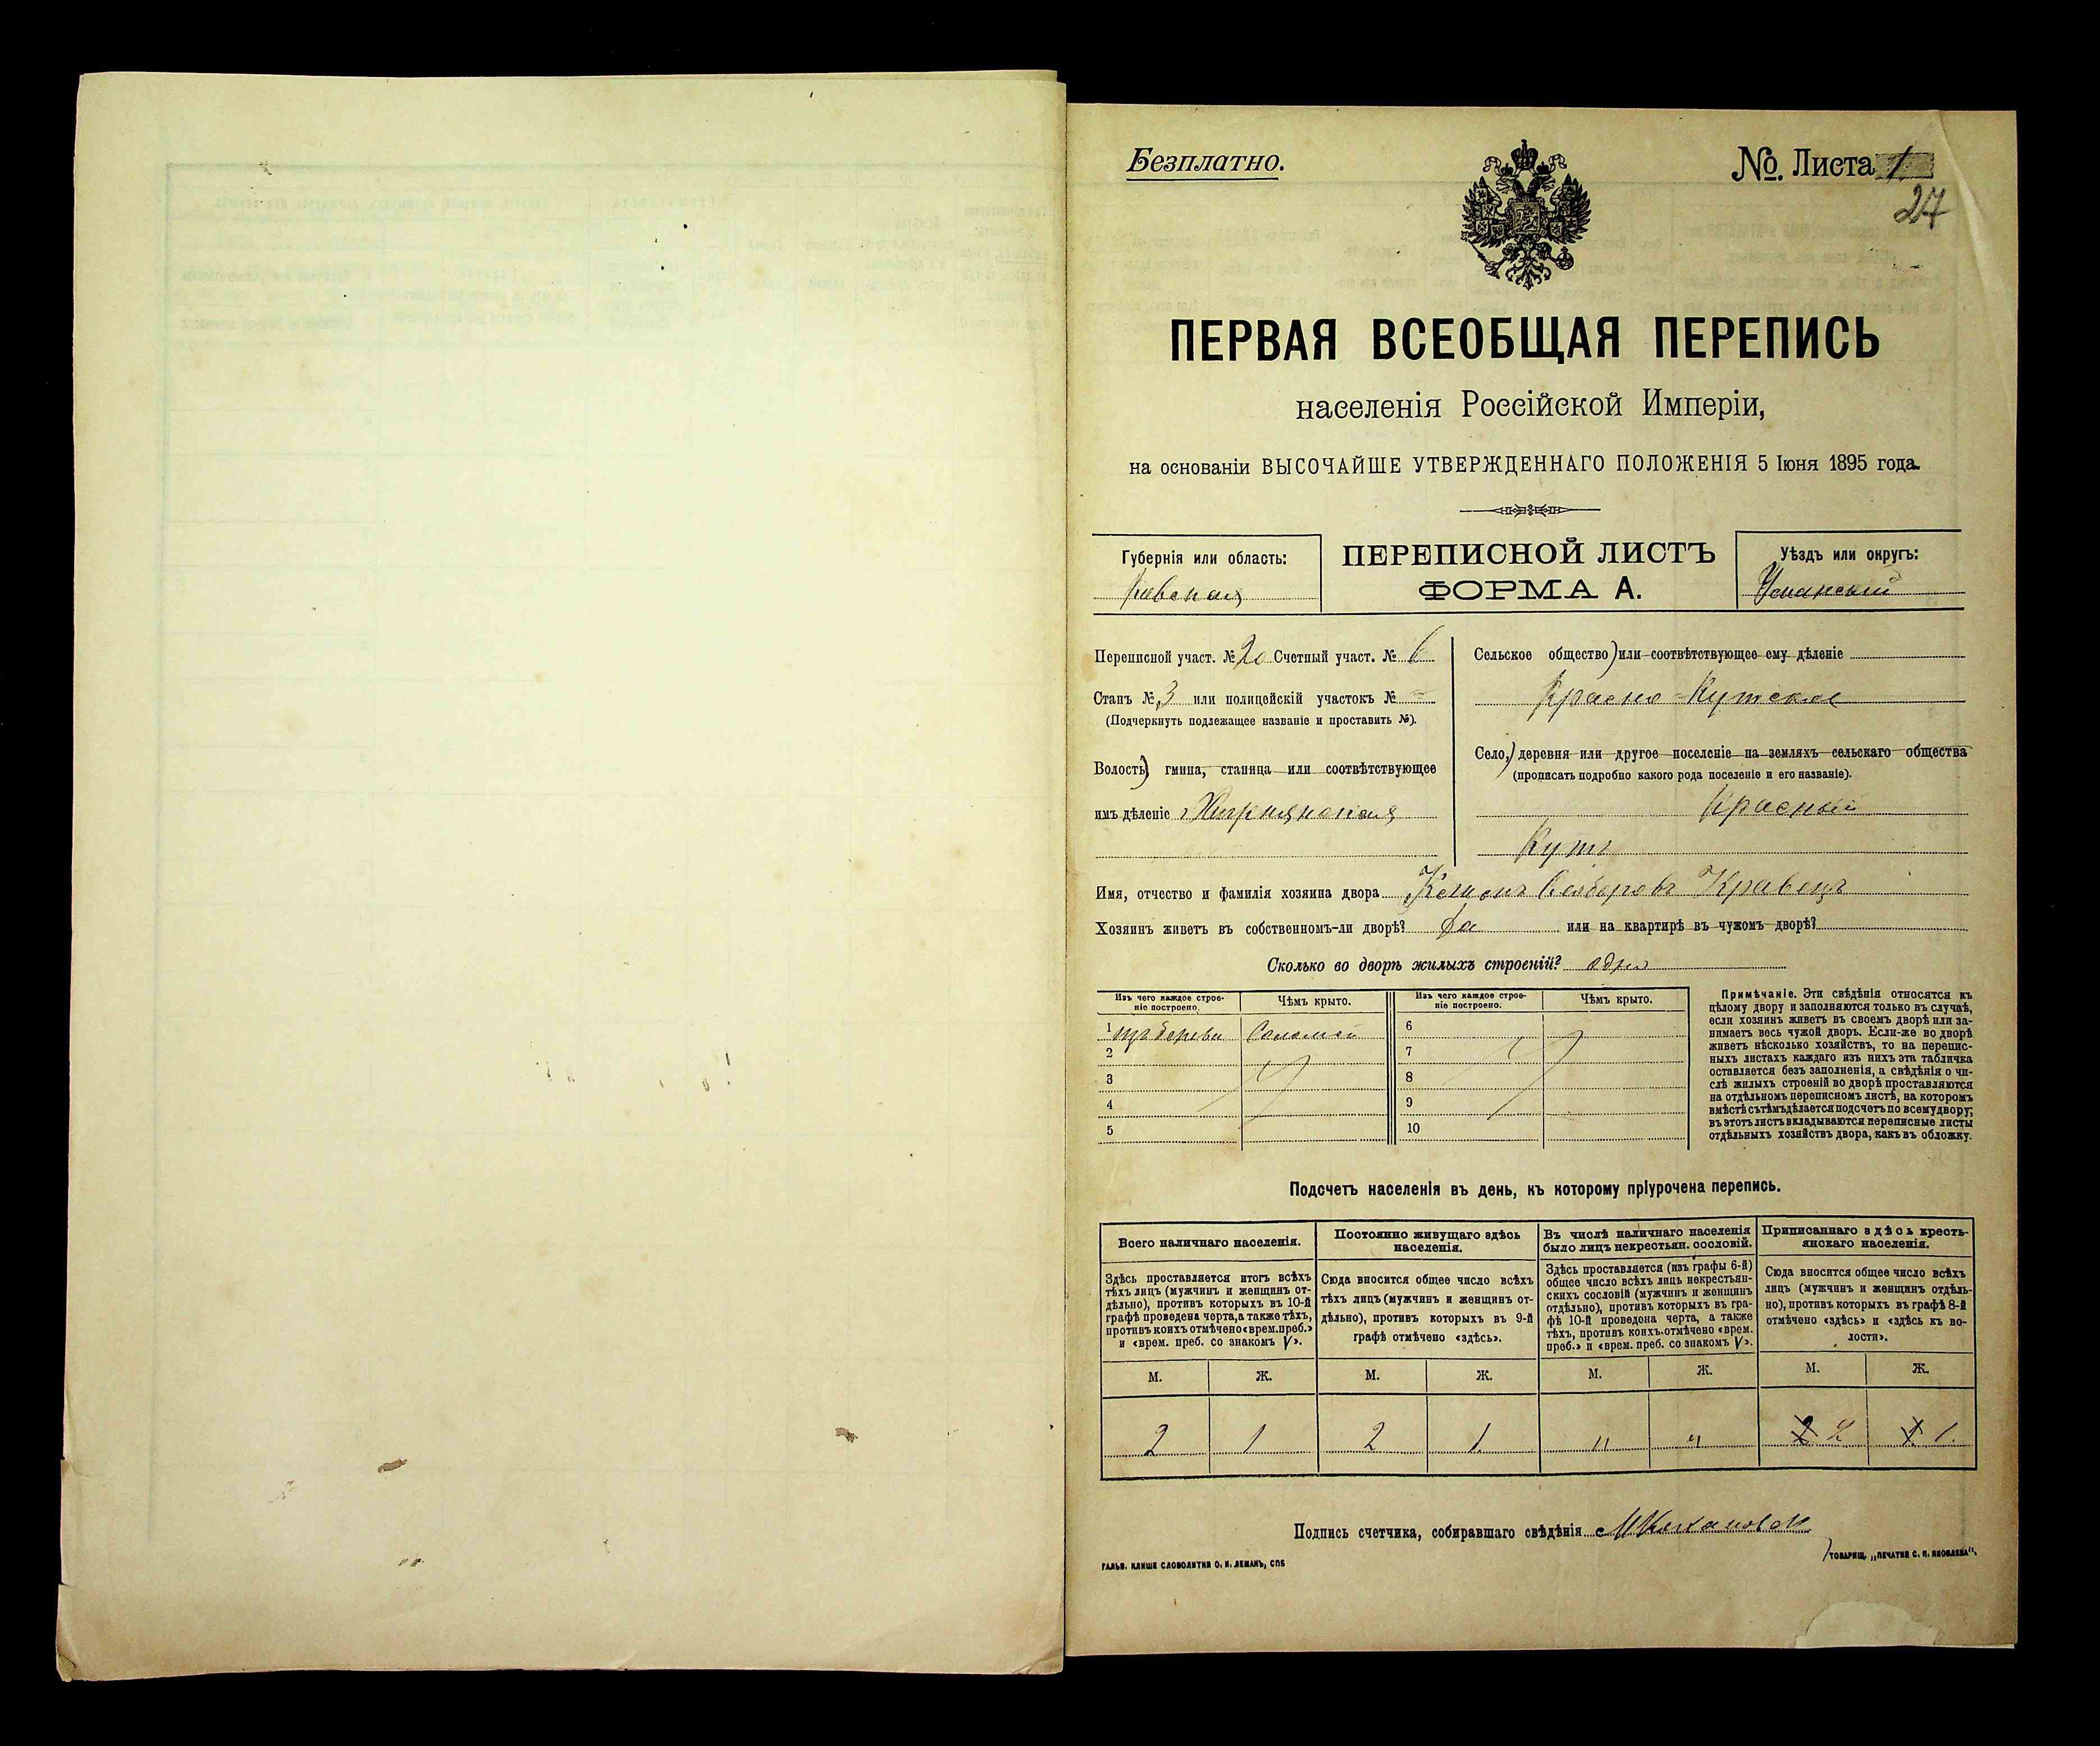 Безплатно.
№ Листа 1
27
ПЕРВАЯ ВСЕОБЩАЯ ПЕРЕПИСЬ
населенія Россійской Имперіи,
на основаніи ВЫСОЧАЙШЕ УТВЕРЖДЕННАГО ПОЛОЖЕНІЯ 5 Іюня 1895 года.
Губернія или область:
Кіевская
ПЕРЕПИСНОЙ ЛИСТЪ
ФОРМА А.
Уѣздъ или округъ:
Уманскій
Переписной участ. № 20 Счетный участ. № 6
Станъ № 3 или полицейскій участокъ №
(Подчеркнуть подлежащее названіе и проставить №).
Волость) гмина, станица или соотвѣтствующее
имъ дѣленіе
Сельское общество) или соотвѣтствующее ему дѣленіе
Красно-Кутское
Село,) деревня или другое поселеніе на земляхъ сельскаго общества
(прописать подробно какого рода поселеніе и его названіе).
Красный
Кутъ
Имя, отчество и фамилія хозяина двора Кравецъ
Хозяинъ живетъ въ собственномъ-ли дворѣ? да или на квартирѣ въ чужомъ дворѣ?
Сколько во дворѣ жилыхъ строеній? одно
Изъ чего каждое строе-
ніе построено.
Чѣмъ крыто.
Изъ чего каждое строе-
ніе построено.
Чѣмъ крыто.
1 изъ дерева Соломой
2
3
4
5
6
7
8
9
10
Примѣчаніе. Эти свѣдѣнія относятся къ
цѣлому двору и заполняются только въ случаѣ,
если хозяинъ живетъ въ своемъ дворѣ или за-
нимаетъ весь чужой дворъ. Если-же во дворѣ
живетъ нѣсколько хозяйствъ, то на перепис-
ныхъ листахъ каждаго изъ нихъ эта табличка
оставляется безъ заполненія, а свѣдѣнія о чи-
слѣ жилыхъ строеній во дворѣ проставляются
на отдѣльномъ переписномъ листѣ, на которомъ
вмѣстѣ съ тѣмъ дѣлается подсчетъ по всему двору;
въ этотъ листъ вкладываются переписные листы
отдѣльныхъ хозяйствъ двора, какъ въ обложку.
Подсчетъ населенія въ день, къ которому пріурочена перепись.
Всего наличнаго населенія.
Здѣсь проставляется итогъ всѣхъ
тѣхъ лицъ (мужчинъ и женщинъ от-
дѣльно), противъ которыхъ въ 10-й
графѣ проведена черта, а также тѣхъ,
противъ коихъ отмѣчено «врем. преб.»
и «врем. преб. со знакомъ V».
М. Ж.
2 1
Постоянно живущаго здѣсь
населенія.
Сюда вносится общее число всѣхъ
тѣхъ лицъ (мужчинъ и женщинъ от-
дѣльно), противъ которыхъ въ 9-й
графѣ отмѣчено «здѣсь».
М. Ж.
2 1
Въ числѣ наличнаго населенія
было лицъ некрестьян. сословій.
Здѣсь проставляется (изъ графы 6-й)
общее число всѣхъ лицъ некрестьян-
скихъ сословій (мужчинъ и женщинъ
отдѣльно), противъ которыхъ въ гра-
фѣ 10-й проведена черта, а также
тѣхъ, противъ коихъ отмѣчено «врем.
преб.» и «врем. преб. со знакомъ V».
М. Ж.
" "
Приписаннаго здѣсь кресть-
янскаго населенія.
Сюда вносится общее число всѣхъ
лицъ (мужчинъ и женщинъ отдѣль-
но), противъ которыхъ въ графѣ 8-й
отмѣчено «здѣсь» и «здѣсь къ во-
лости».
М. Ж.
2 1
Подпись счетчика, собиравшаго свѣдѣнія
ГАЛЬВ. КЛИШЕ СЛОВОЛИТНИ О. И. ЛЕМАНЪ, СПБ
ТОВАРИЩ. „ПЕЧАТНЯ С. П. ЯКОВЛЕВА".